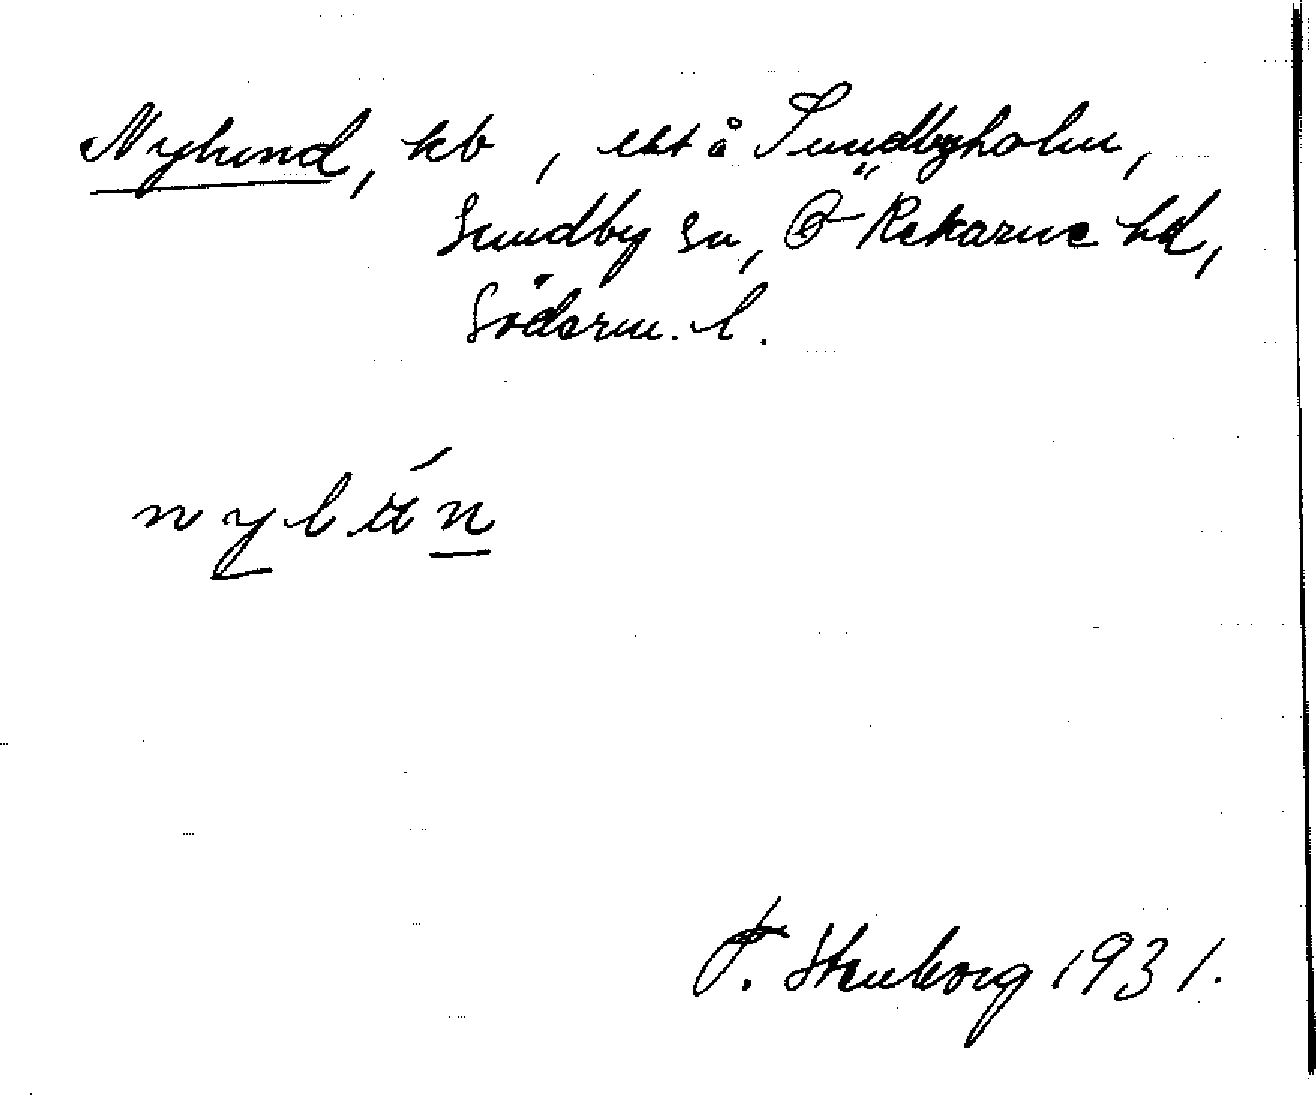 Nylund, kb, ett å Sundbyholm,
Sundby sn, Ö Rekarne hd,
Söderm. l.
nylún
F. Stenborg 1931.